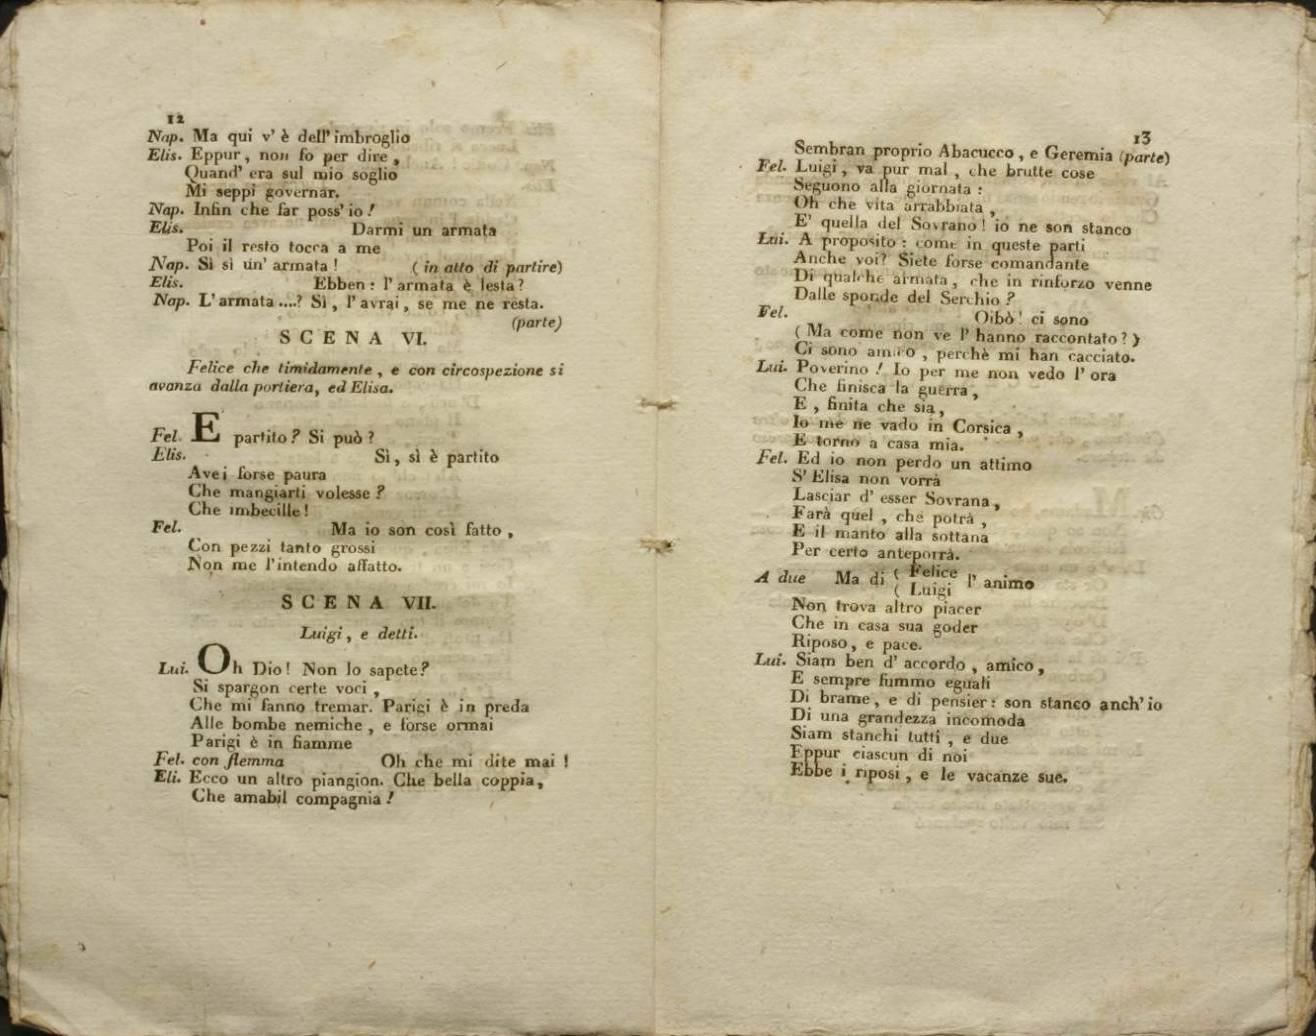 12
Nap. Ma qui v' è dell' imbroglio
Elis. Eppur, non so per dire,
Quand' era sul mio soglio
Mi seppi governar.
Nap. Infin che far poss' io!
Elis. Darmi un armata
Poi il resto tocca a me
Nap. Sì sì un' armata! (in atto di partire)
Elis. Ebben: l' armata è lesta?
Nap. L' armata....? Sì, l' avrai, se me ne resta.
(parte)
SCENA VI.
Felice che timidamente, e con circospezione si
avanza dalla portiera, ed Elisa.
Fel. E partito? Si può?
Elis. Sì, sì è partito
Avei forse paura
Che mangiarti volesse?
Che imbecille!
Fel. Ma io son così fatto,
Con pezzi tanto grossi
Non me l'intendo affatto.
SCENA VII.
Luigi, e detti.
Lui. Oh Dio! Non lo sapete?
Si spargon certe voci,
Che mi fanno tremar. Parigi è in preda
Alle bombe nemiche, e forse ormai
Parigi è in fiamme
Fel. con flemma Oh che mi dite mai!
Eli. Ecco un altro piangion. Che bella coppia,
Che amabil compagnia!
13
Sembran proprio Abacucco, e Geremia (parte)
Fel. Luigi, va pur mal, che brutte cose
Seguono alla giornata:
Oh che vita arrabbiata,
E' quella del Sovrano! io ne son stanco
Lui. A proposito: come in queste parti
Anche voi? Siete forse comandante
Di qualche armata, che in rinforzo venne
Dalle sponde del Serchio?
Fel. Oibò! ci sono
(Ma come non ve l' hanno raccontato?)
Ci sono amico, perchè mi han cacciato.
Lui. Poverino! Io per me non vedo l' ora
Che finisca la guerra,
E, finita che sia,
Io me ne vado in Corsica,
E torno a casa mia.
Fel. Ed io non perdo un attimo
S' Elisa non vorrà
Lasciar d' esser Sovrana,
Farà quel, che potrà,
E il manto alla sottana
Per certo anteporrà.
A due Ma di ( Felice l' animo
( Luigi
Non trova altro piacer
Che in casa sua goder
Riposo, e pace.
Lui. Siam ben d' accordo, amico,
E sempre fummo eguali
Di brame, e di pensier: son stanco anch' io
Di una grandezza incomoda
Siam stanchi tutti, e due
Eppur ciascun di noi
Ebbe i riposi, e le vacanze sue.